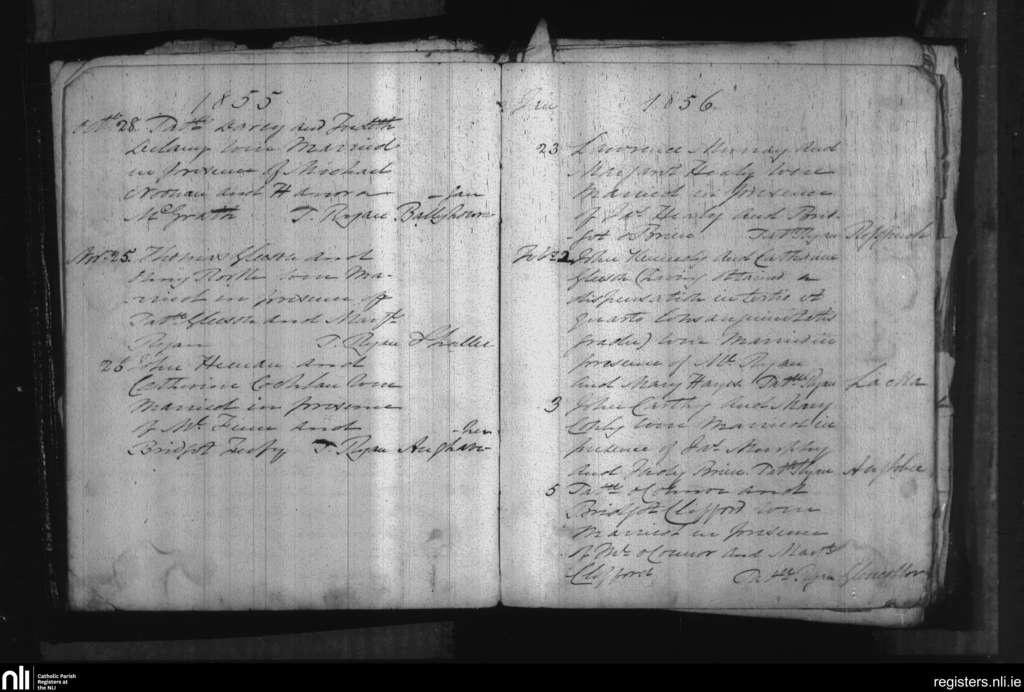 1855
Octbr 28. Patk Darcy and Judith
Delany were Married
in presence of Michael
Noonan and Hanora
McGrath T. Ryan
Novr 25. Thomas Gleeson and
were Ma-
rried in presence of
Patk Gleeson and Margt
Ryan T. Ryan
25 John Heenan and
Catherine Coghlan were
Married in presence
of Ml Finn and
Bridget T. Ryan
Jan 1856
23 Lawrence Murray and
Margaret Healy were
Married in presence
of Jas Healy and Brid-
get O Brien Patk Ryan
Feb 2 John Kennedy and Catherine
Gleeson (having obtained a
dispensation in tertio et
quarto consanguinitatis
gradu) were Married in
presence of Ml Ryan
and Mary Hayes Patk Ryan Lacka
3 John Carthy and Mary
were Married in
presence of Jas Murphy
and Judy Brien Patk Ryan
5 Patk O Connor and
Bridget Clifford were
Married in presence
of Ml O Connor and Margt
Clifford Patk Ryan
nli
Catholic Parish
Registers at
the NLI
registers.nli.ie